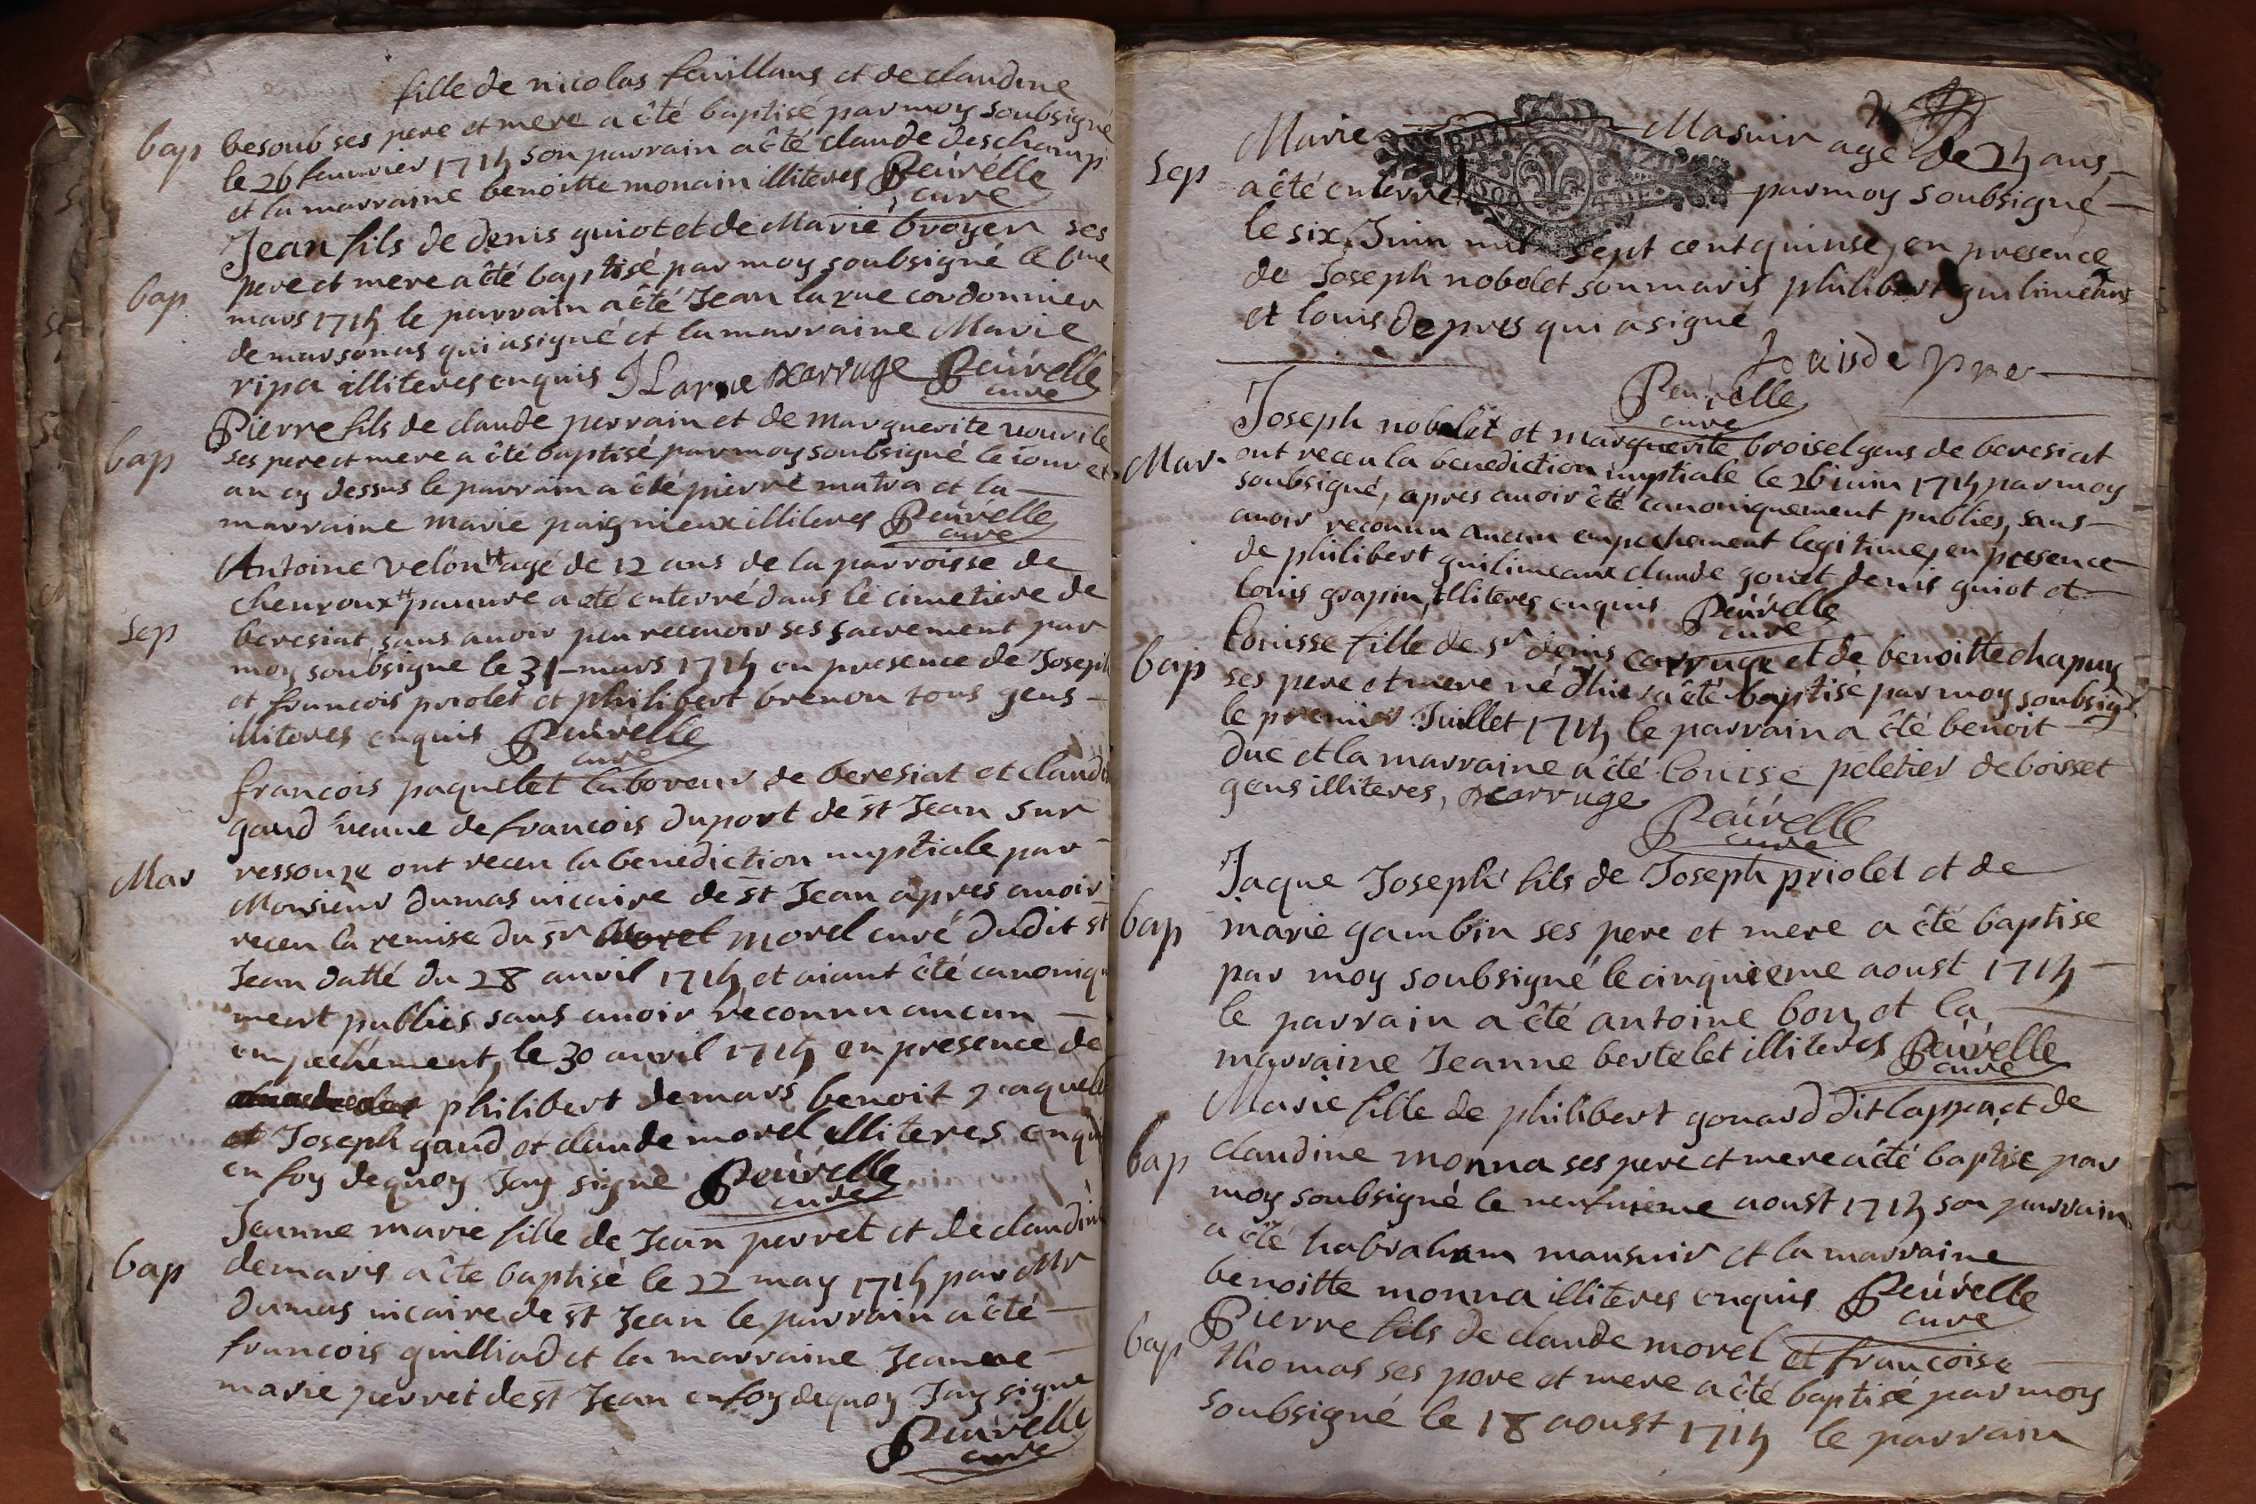 fille de nicolas feuillans et de claudine
bap besoub ses pere et mere a êté baptisé par moy soubsigné
le 26 feuurier 1715 son parrain a êté claude deschamp
et la marraine benoitte monain illiteres Peúrelle
cure
Jean fils de denis guiot et de Marie broyer ses
bap pere et mere a êté baptisé par moy soubsigné le 6me
mars 1715 le parrain a êté Jean larue cordonnier
de marsonas qui a signé et la marraine Marie
ripa illiteres enquis J Larue Decarruge Peúrelle
cure
Pierre fils de claude perrain et de marguerite
bap ses pere et mere a êté baptisé par moy soubsigné le iour et
an cy dessus le parrain a êté pierre matra et la
marraine marie paignieux illiteres Peúrelle
cure
Antoine velon agé de 12 ans de la parroisse de
cheuroux pauure a eté enterré dans le cimetiere de
sep beresiat sans auoir peu receuoir ses sacrement par
moy soubsigne le 31 mars 1715 en presence de Joseph
et francois priolet et philibert brenon tous gens
illiteres enquis Peúrelle
cure
francois paquelet laboreur de beresiat et claudi
gaud ueuue de francois duport de st Jean sur
Mar ressouze ont receu la benediction nuptiale par
Monsieur dumas uicaire de st Jean apres auoir
receu la remise du sr morel curé dudit st
Jean datté du 28 auril 1715 et aiant êté canoniqu
ment publiés sans auoir reconnu aucun
empechement, le 30 auril 1715 en presence de
philibert demars benoit paquele
et Joseph gaud et claude morel illiteres enqui
en foy dequoy Jay signe Peúrelle
cure
Jeanne marie fille de Jean perret et de claudine
bap demaris a êté baptisé le 22 may 1715 par Mr
dumas uicaire de st Jean le parrain a êté
francois guilliad et la marraine Jeanne
marie perret de st Jean en foy dequoy Jay signe
Peúrelle
cure
Marie Masuir agé de 25 ans
sep a êté enterre par moy soubsigné
le six Juin mil sept cent quinse, en presence
de Joseph nobelet son maris philibert guilimeaux
et louis depres qui a signé
Louis de pre
Peúrelle
cure
Joseph nobelet et marguerite broisel gens de beresiat
Mar ont receu la benediction nuptiale le 26 iuin 1715 par moy
soubsigné, apres auoir êté canoniquement publiés, sans
auoir reconnu aucun empechement legitime, en presence
de philibert guilimeaux claude gonet denis guiot et
louis grapin, illiteres enquis Peúrelle
cure
Louisse fille de sr denis carruge et de benoitte chapuy
bap ses pere et mere né d'hier a êté baptisé par moy soubsigé
le premier Juillet 1715 le parrain a êté benoit
duc et la marraine a êté louise peletier de boisset
gens illiteres, Decarruge
Peúrelle
cure
Jaque Joseph fils de Joseph priolet et de
bap marie gambin ses pere et mere a êté baptise
par moy soubsigné le cinquieme aoust 1715
le parrain a êté antoine bon et la
marraine Jeanne bertelet illiteres Peúrelle
cure
Marie fille de philibert gonard dit lappa, et de
bap claudine monna ses pere et mere a êté baptise par
moy soubsigné le neufuieme aoust 1715 son parrain
a êté habraham mausuir et la marraine
benoitte monna illiteres enquis Peúrelle
cure
Pierre fils de claude morel et francoise
bap thomas ses pere et mere a êté baptisé par moy
soubsigné le 18 aoust 1715 le parrain